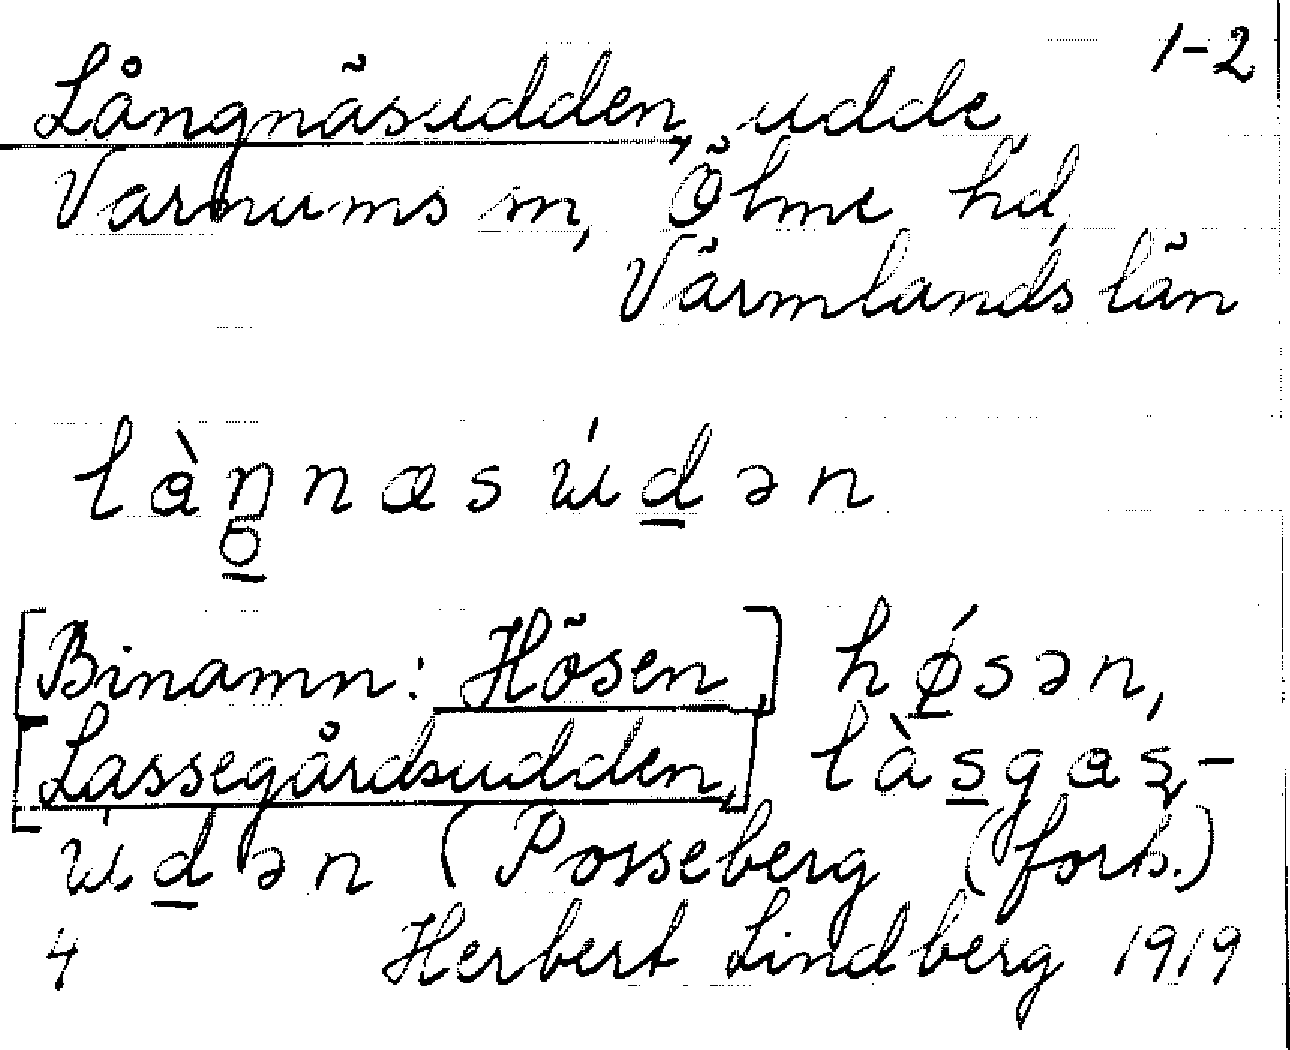 1-2
Långnäsudden, udde,
Varnums sn, Ölme hd,
Värmlands län
làŋnæsúdən
[Binamn: Hösen,] hǿsən,
[Lassegårdsudden,] làsgas-
údən (Posseberg (forts.)
4 Herbert Lindberg 1919